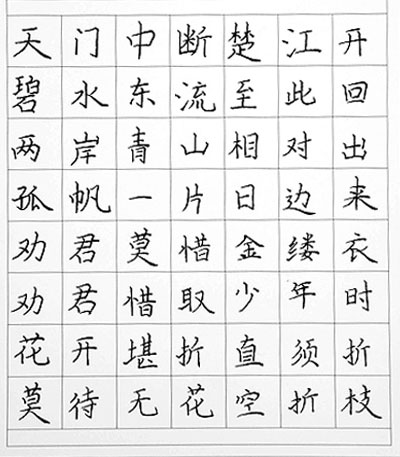 天门中断楚江开
碧水东流至此回
两岸青山相对出
孤帆一片日边来
劝君莫惜金缕衣
劝君惜取少年时
花开堪折直须折
莫待无花空折枝